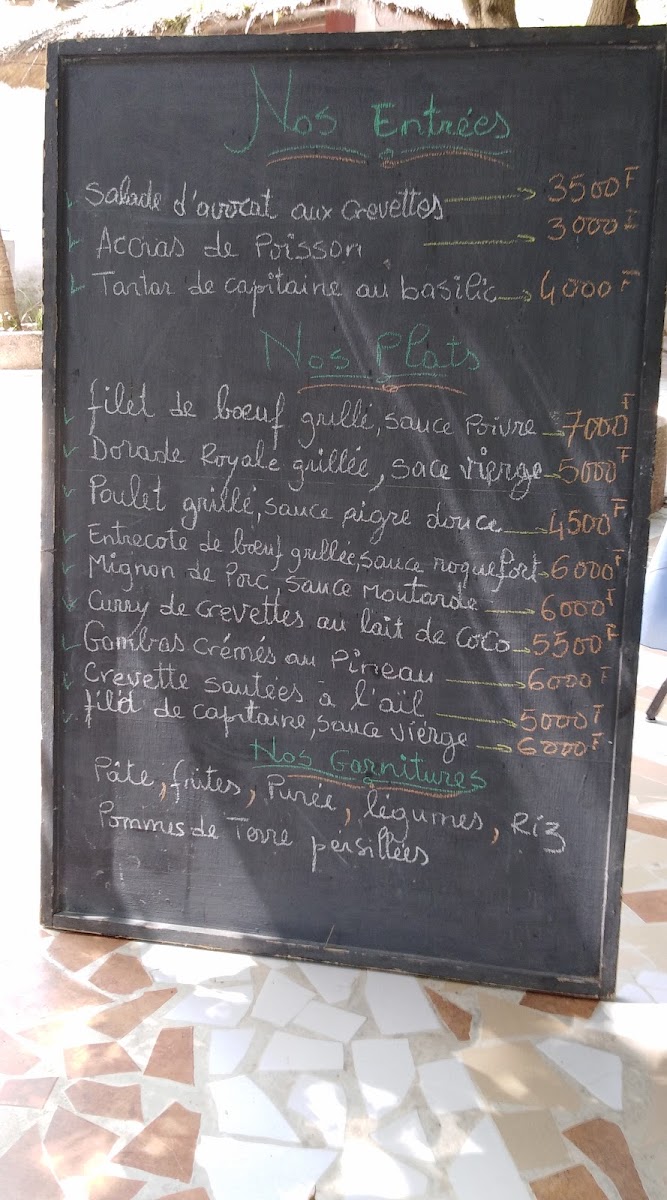 Nos Entrées
Salade d'avocat aux crevettes → 3500F
Accras de Poisson → 3000F
Tartar de capitaine au basilic → 4000F
Nos Plats
filet de bœuf grillé, sauce Poivre - 7000F
Dorade Royale grillée, sace vierge - 5000F
Poulet grillé, sauce aigre douce - 4500F
Entrecote de bœuf grillée, sauce roquefort - 6000F
Mignon de Porc, sauce Moutarde - 6000F
Curry de crevettes au lait de coco - 5500F
Gambas crémés au Pineau → 6000F
Crevette sautées à l'aïl → 5000F
filet de capitaine, sauce vierge → 6000F
Nos Garnitures
Pâte, frites, Purée, légumes, Riz
Pommes de Terre persillées